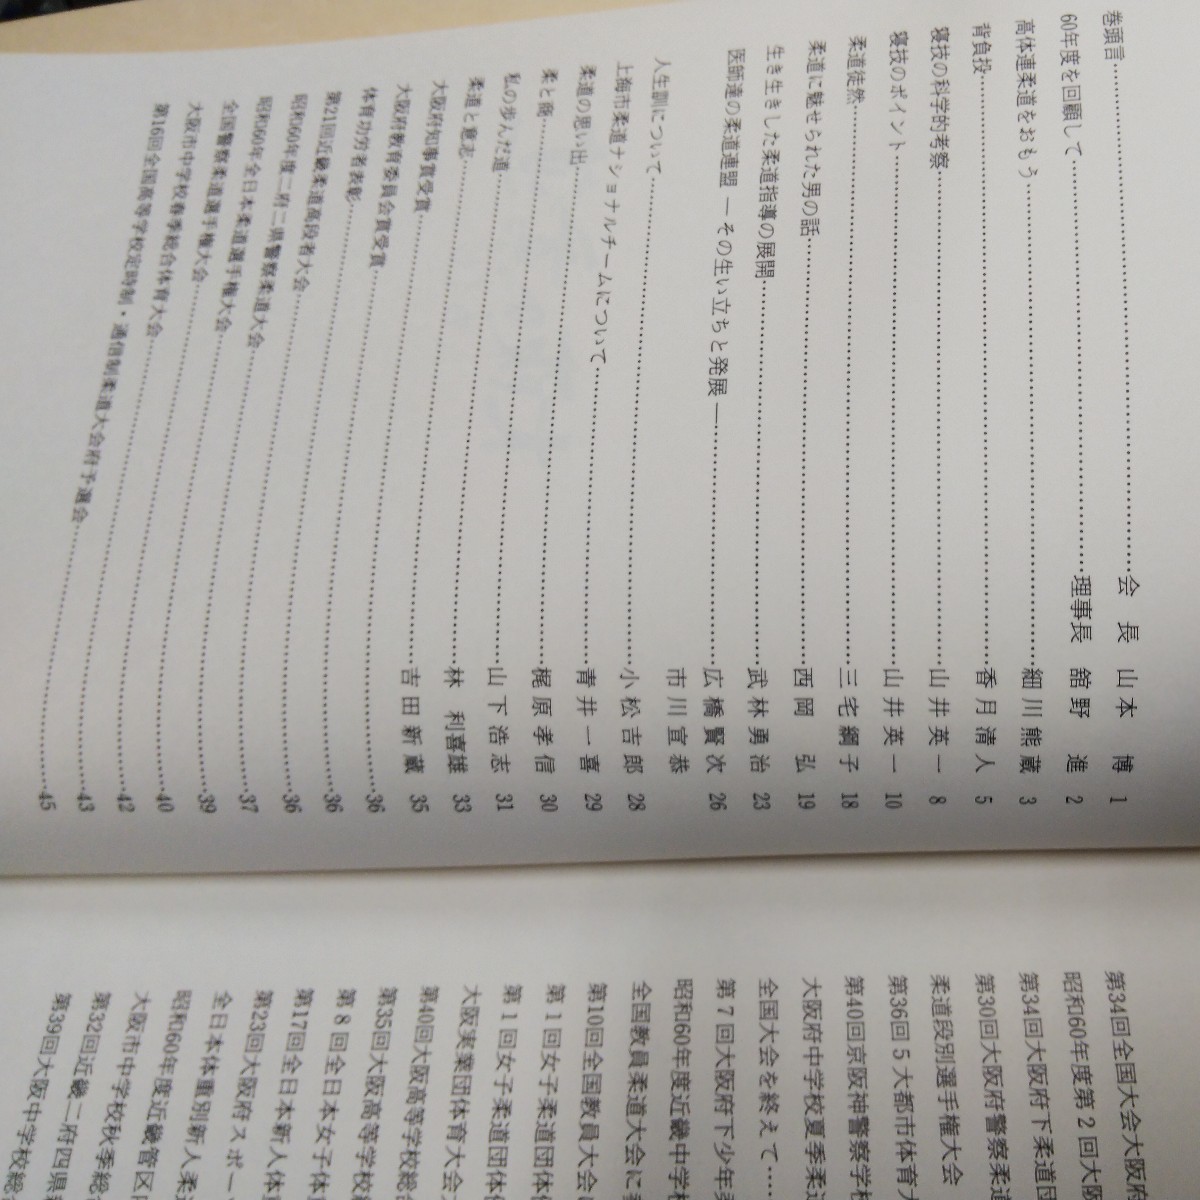 巻頭言……会 長 山本 博 1
60年度を回顧して……理事長 舘野 進 2
高体連柔道をおもう……細川熊蔵 3
背負投……香月清人 5
寝技の科学的考察……山井英一 8
寝技のポイント……山井英一 10
柔道徒然……三宅綱子 18
柔道に魅せられた男の話……西岡 弘 19
生き生きした柔道指導の展開……武林勇治 23
医師達の柔道連盟 ― その生い立ちと発展 ―……広橋賢次 26
人生訓について……市川宣恭
上海市柔道ナショナルチームについて……小松吉郎 28
柔道の思い出……青井一喜 29
柔と商……梶原孝信 30
私の歩んだ道……山下浩志 31
柔道と意志……林 利喜雄 33
大阪府知事賞受賞……吉田新蔵 35
大阪府教育委員会賞受賞……36
体育功労者表彰……36
第21回近畿柔道高段者大会……36
昭和60年度二府二県警察柔道大会……37
昭和60年全日本柔道選手権大会……39
全国警察柔道選手権大会……40
大阪市中学校春季総合体育大会……42
第16回全国高等学校定時制・通信制柔道大会府予選会……43
……45
第34回全国大会大阪府
昭和60年度第2回大阪
第34回大阪府下柔道
第30回大阪府警察柔
柔道段別選手権大会
第36回5大都市体育
第40回京阪神警察学
大阪府中学校夏季柔
全国大会を終えて……
第7回大阪府下少年
昭和60年度近畿中学
全国教員柔道大会に
第10回全国教員大会
第1回女子柔道団体
第1回女子柔道団体
大阪実業団体育大会
第40回大阪高等学校
第35回大阪高等学校
第8回全日本女子体
第17回全日本新人体
第23回大阪府スポー
全日本体重別新人柔
昭和60年度近畿管区
大阪市中学校秋季総
第32回近畿二府四県
第39回大阪中学校総